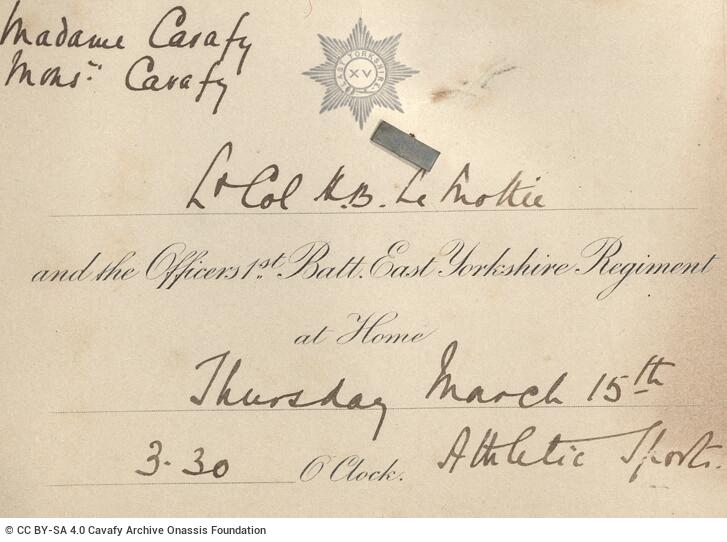 Madame Cavafy
Monsr. Cavafy
EAST YORKSHIRE
XV
Lt Col H.B. Le Mottée
and the Officers 1st. Batt. East Yorkshire Regiment
at Home
Thursday March 15th
3.30 O'Clock. Athletic Sports.
© CC BY-SA 4.0 Cavafy Archive Onassis Foundation